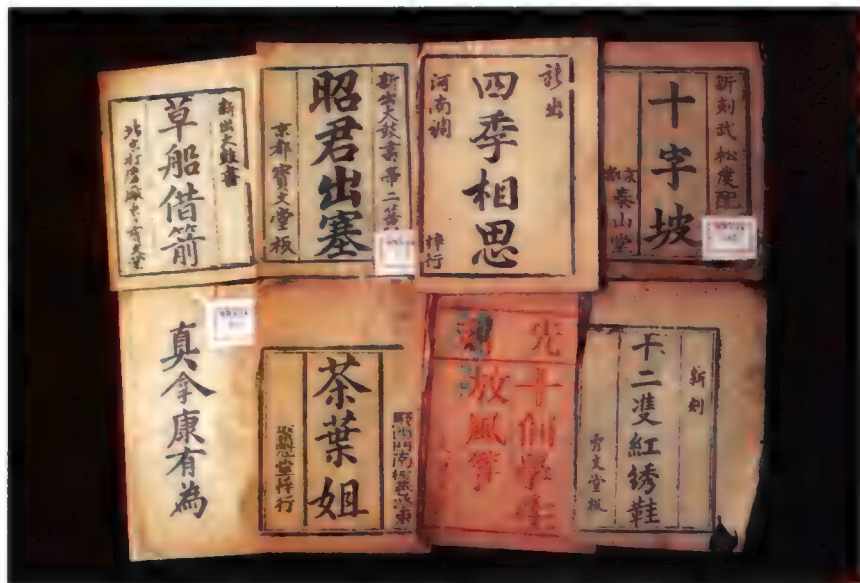 新出大鼓書
草船借箭
新出大鼓書第二
昭君出塞
京都寳文堂板
新出
四季相思
河南調
梓行
新刻武松發配
十字坡
京都
泰山堂
真拿康有為
茶葉姐
堂梓行
十個學生
放風箏
新刻
十二雙紅綉鞋
文堂板